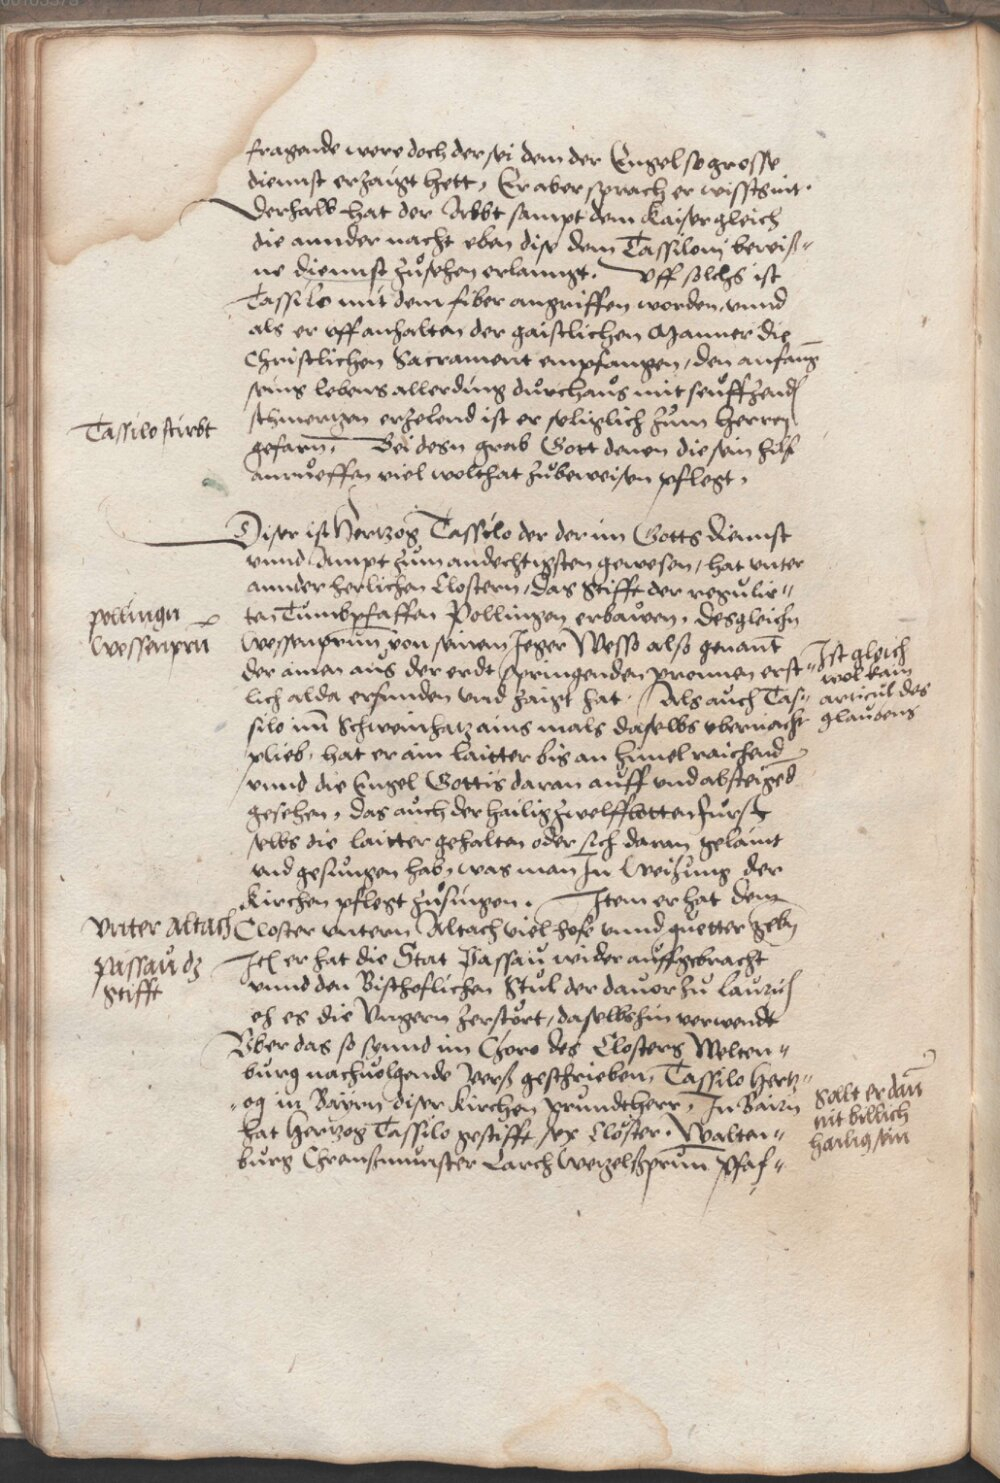 fragende were doch der sei dem der Engel so grosse
diennst erzaigt hett, Er aber sprach er wissts nit.
Derhalb hat der Abbt sampt dem Kaiser gleich
die annder nacht eben dise dem Tassiloni bewiß-
ne diennst zusehen erlanngt. Uff solchs ist
Tassilo mit dem fiber angriffen worden, unnd
als er uff anhalten der gaistlichen Manner die
Christlichen Sacrament empfangen, den anfang
seins lebens allerding durchaus mit seuffzenden
schmertzen erzelend ist er seliglich zum herren
gefarn. Bei desen grab Gott denen die sein hilf
anrueffen viel wolthat zubeweisen pflegt.
Tassilo stirbt
Diser ist Hertzog Tassilo der der im Gotts diennst
unnd Ampt zum andechtigsten gewesen, hat unter
annder herlichen Clostern, das Stifft der regulir-
ten Tumbpfaffen Pollingen erbawen, desgleichn
Wessenprun von seinem Jeger Wesso also genant
der ainen aus der erdt springenden pronnen erst-
lich alda erfunden und zaigt hat. Als auch Tas-
silo im Schweinhatz ains mals daselbs ubernacht
plieb, hat er ain laitter bis an himel raichend
unnd die Engel Gottis daran auff und absteigend
gesehen, das auch der hailig zwelffbotten Furst
selbs die laitter gehalten oder sich daran gelaint
und gesungen hab, was man In Weihung der
Kirchen pflegt zusingen. Item er hat dem
Closter untern Altach viel hofe unnd guetter gebn
Item er hat die Stat Passau wider auffgebracht
unnd den Bischoflichen Stul der davor zu Laurich
eh es die Ungern zerstört, daselbshin verwendt
Uber das so sennd im Chore des Closters Welten-
burg nachvolgende verß geschrieben, Tassilo Hertz-
og in Bayrn diser Kirchen grundtherr, In Bairn
hat Hertzog Tassilo gestifft sex Closter. Walten-
burg Chremsmunster Larch Wezelßprun Pfaf-
pollingn
Wessenprn
Ist gleich
wol kain
articul des
glaubens
Unter Altach
Passau dz
Stifft
Solt er dan
nit billich
hailig sein